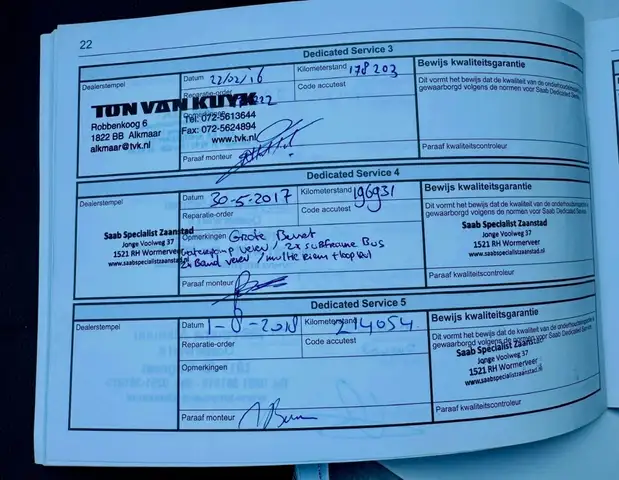 22
Dedicated Service 3
Dealerstempel
TON VAN KUYK
Robbenkoog 6
1822 BB Alkmaar
alkmaar@tvk.nl
Datum 22/02/'16
Kilometerstand 178203
Reparatie-order
Code accutest
Tel: 072-5613644
Fax: 072-5624894
www.tvk.nl
Paraaf monteur
Bewijs kwaliteitsgarantie
Dit vormt het bewijs dat de kwaliteit van de onderhoudsbeurt
gewaarborgd volgens de normen voor Saab Dedicated Service.
Paraaf kwaliteitscontroleur
Dedicated Service 4
Dealerstempel
Saab Specialist Zaanstad
Jonge Voolweg 37
1521 RH Wormerveer
www.saabspecialistzaanstad.nl
Datum 30-5-2017
Kilometerstand 196931
Reparatie-order
Code accutest
Opmerkingen Grote Beurt
veren / 2x subframe Bus
2x Band veren / multi riem + looprol
Paraaf monteur
Bewijs kwaliteitsgarantie
Dit vormt het bewijs dat de kwaliteit van de onderhoudsbeurt
gewaarborgd volgens de normen voor Saab Dedicated Service.
Saab Specialist Zaanstad
Jonge Voolweg 37
1521 RH Wormerveer
www.saabspecialistzaanstad.nl
Paraaf kwaliteitscontroleur
Dedicated Service 5
Dealerstempel
Datum 1-8-2018
Kilometerstand 214054
Reparatie-order
Code accutest
Opmerkingen
Paraaf monteur
Bewijs kwaliteitsgarantie
Dit vormt het bewijs dat de kwaliteit van de onderhoudsbeurt
gewaarborgd volgens de normen voor Saab Dedicated Service.
Saab Specialist Zaanstad
Jonge Voolweg 37
1521 RH Wormerveer
www.saabspecialistzaanstad.nl
Paraaf kwaliteitscontroleur